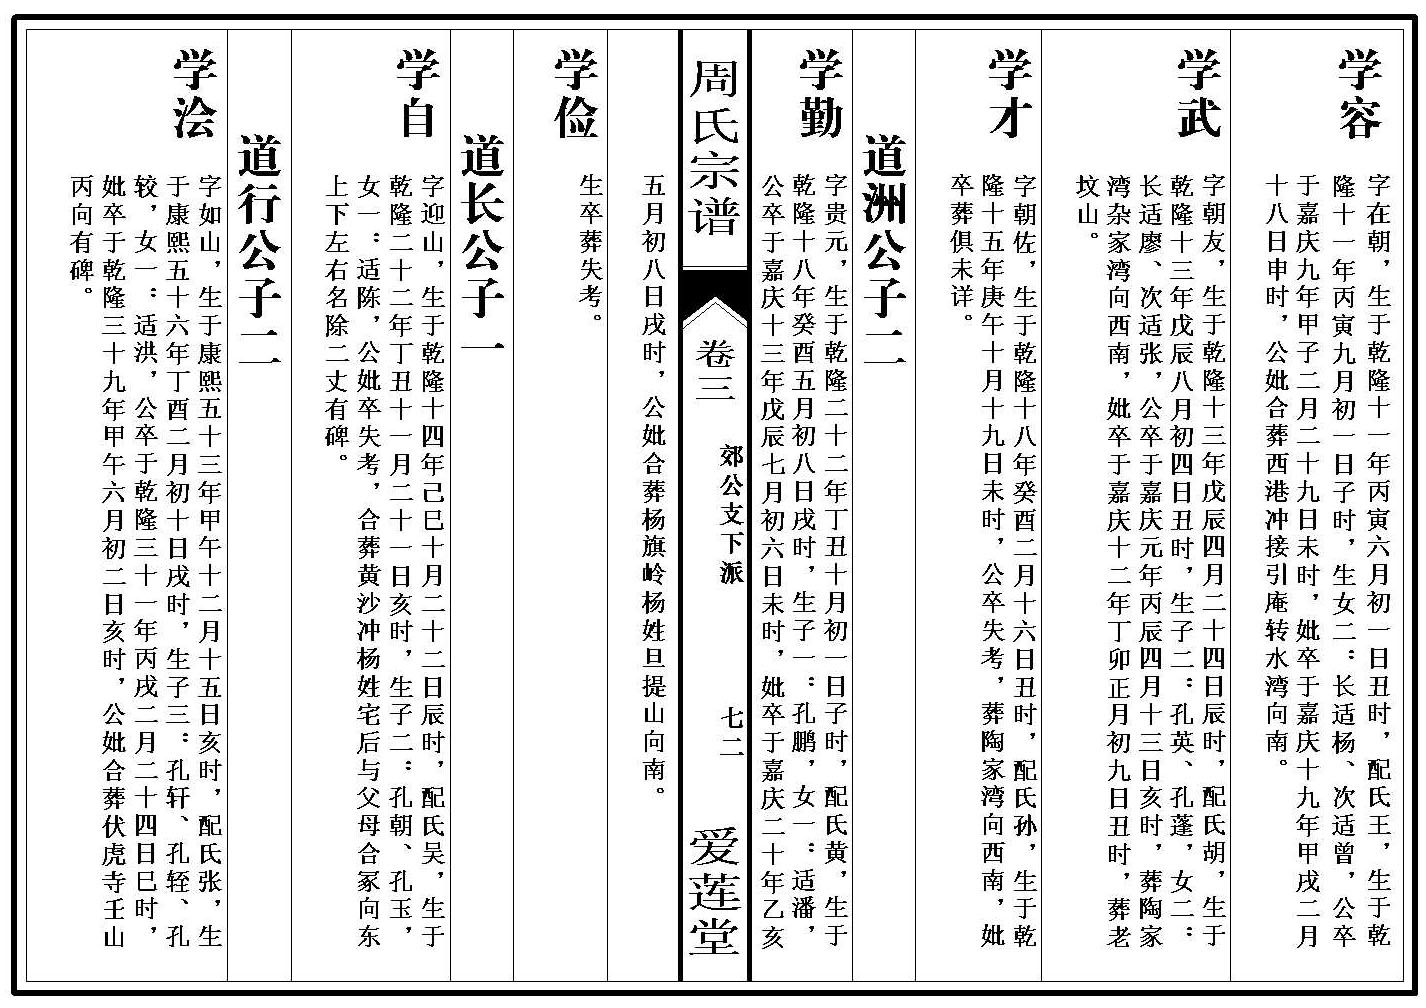 学容
字在朝，生于乾隆十一年丙寅六月初一日丑时，配氏王，生于乾
隆十一年丙寅九月初一日子时，生女二：长适杨、次适曾，公卒
于嘉庆九年甲子二月二十九日未时，妣卒于嘉庆十九年甲戌二月
十八日申时，公妣合葬西港冲接引庵转水湾向南。
学武
字朝友，生于乾隆十三年戊辰四月二十四日辰时，配氏胡，生于
乾隆十三年戊辰八月初四日丑时，生子二：孔英、孔蓬，女二：
长适廖、次适张，公卒于嘉庆元年丙辰四月十三日亥时，葬陶家
湾杂家湾向西南，妣卒于嘉庆十二年丁卯正月初九日丑时，葬老
坟山。
学才
字朝佐，生于乾隆十八年癸酉二月十六日丑时，配氏孙，生于乾
隆十五年庚午十月十九日未时，公卒失考，葬陶家湾向西南，妣
卒葬俱未详。
道洲公子二
学勤
字贵元，生于乾隆二十二年丁丑十月初一日子时，配氏黄，生于
乾隆十八年癸酉五月初八日戌时，生子一：孔鹏，女一：适潘，
公卒于嘉庆十三年戊辰七月初六日未时，妣卒于嘉庆二十年乙亥
周氏宗谱
卷三
郊公支下派
七二
爱莲堂
五月初八日戌时，公妣合葬杨旗岭杨姓旦提山向南。
学俭
生卒葬失考。
道长公子一
学自
字迎山，生于乾隆十四年己巳十月二十二日辰时，配氏吴，生于
乾隆二十二年丁丑十一月二十一日亥时，生子二：孔朝、孔玉，
女一：适陈，公妣卒失考，合葬黄沙冲杨姓宅后与父母合冢向东
上下左右名除二丈有碑。
道行公子二
学浍
字如山，生于康熙五十三年甲午十二月十五日亥时，配氏张，生
于康熙五十六年丁酉二月初十日戌时，生子三：孔轩、孔轾、孔
较，女一：适洪，公卒于乾隆三十一年丙戌二月二十四日巳时，
妣卒于乾隆三十九年甲午六月初二日亥时，公妣合葬伏虎寺壬山
丙向有碑。